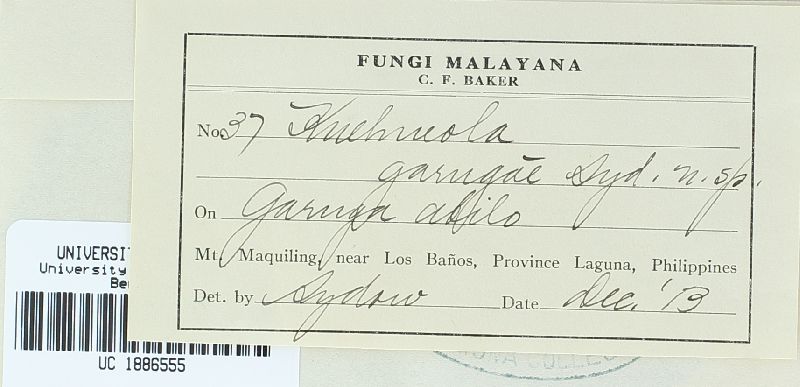 FUNGI MALAYANA
C. F. BAKER
No. 37 Kuehneola
garugae Syd. n. sp.
On Garuga abilo
Mt. Maquiling, near Los Baños, Province Laguna, Philippines
Det. by Sydow Date Dec. '13
UNIVERSIT
University
Be
UC 1886555